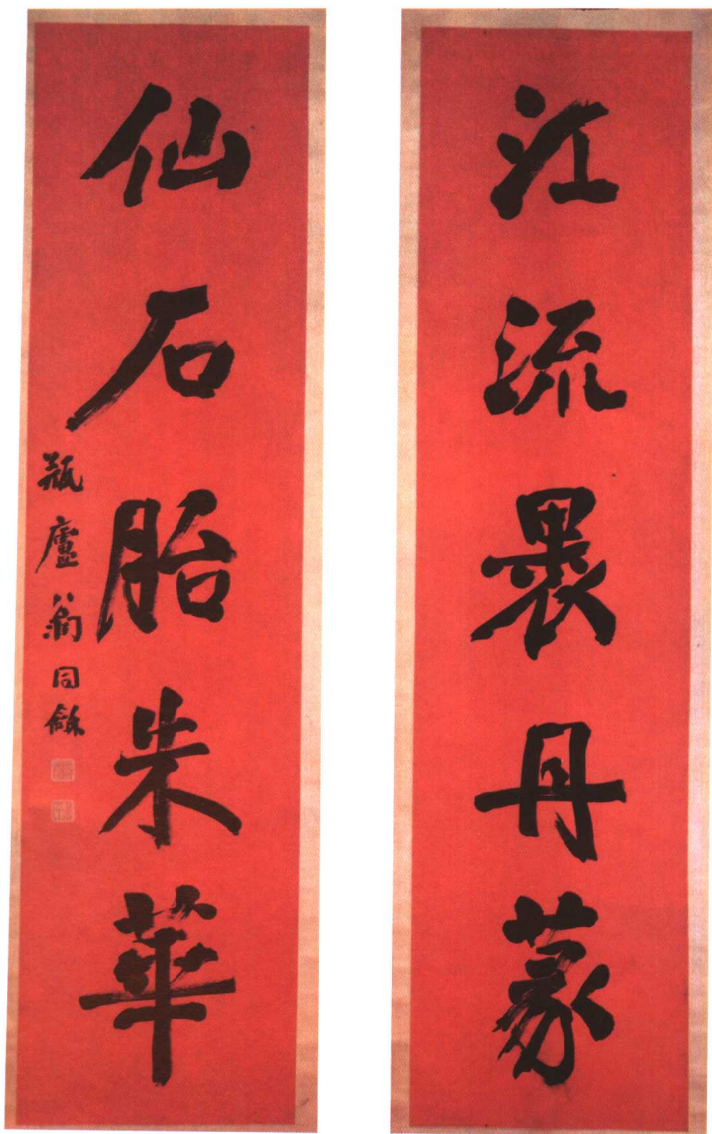 江流褁丹篆
仙石胎朱華
瓶廬翁同龢